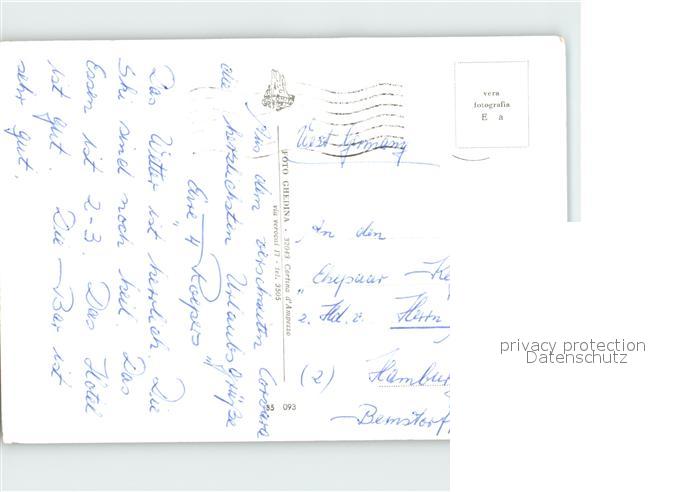 Aus dem verschneiten Corvara
die herzlichsten Urlaubsgrüße
Eure 4 Röpers
Das Wetter ist herrlich. Die
Ski sind noch heil. Das
Essen ist 2-3. Das Hotel
ist gut. Die Bar ist
sehr gut.
FOTO GHEDINA - 32043 Cortina d'Ampezzo
via verocai 17 - Tel. 3505
55 093
vera
fotografia
E a
West Germany
An den
"Ehepaar
z. Hd. v. Herrn
(2) Hamburg
Bernstorff
privacy protection
Datenschutz